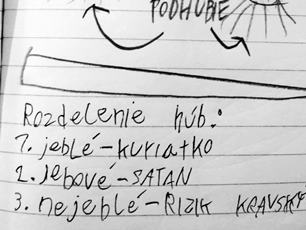 PODHUBIE
Rozdelenie húb:
1. jeblé-kuriatko
2. Jebové-SATAN
3. nejeblé-RIZIK KRAVSKÝ